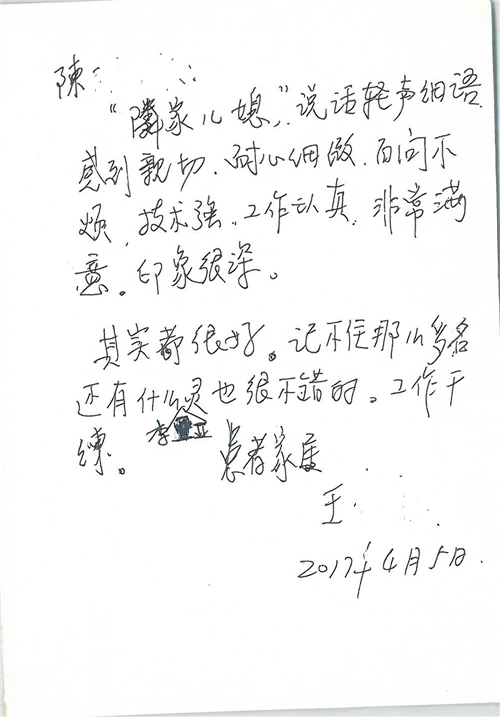 陈
“隣家儿媳”,说话轻声细语
感到亲切、耐心细微、百问不
烦、技术强、工作认真、非常满
意。印象很深。
其实都很好。记不住那么多名
还有什么灵也很不错的。工作干
李亚
练。 患者家属
王
2017年4月5日